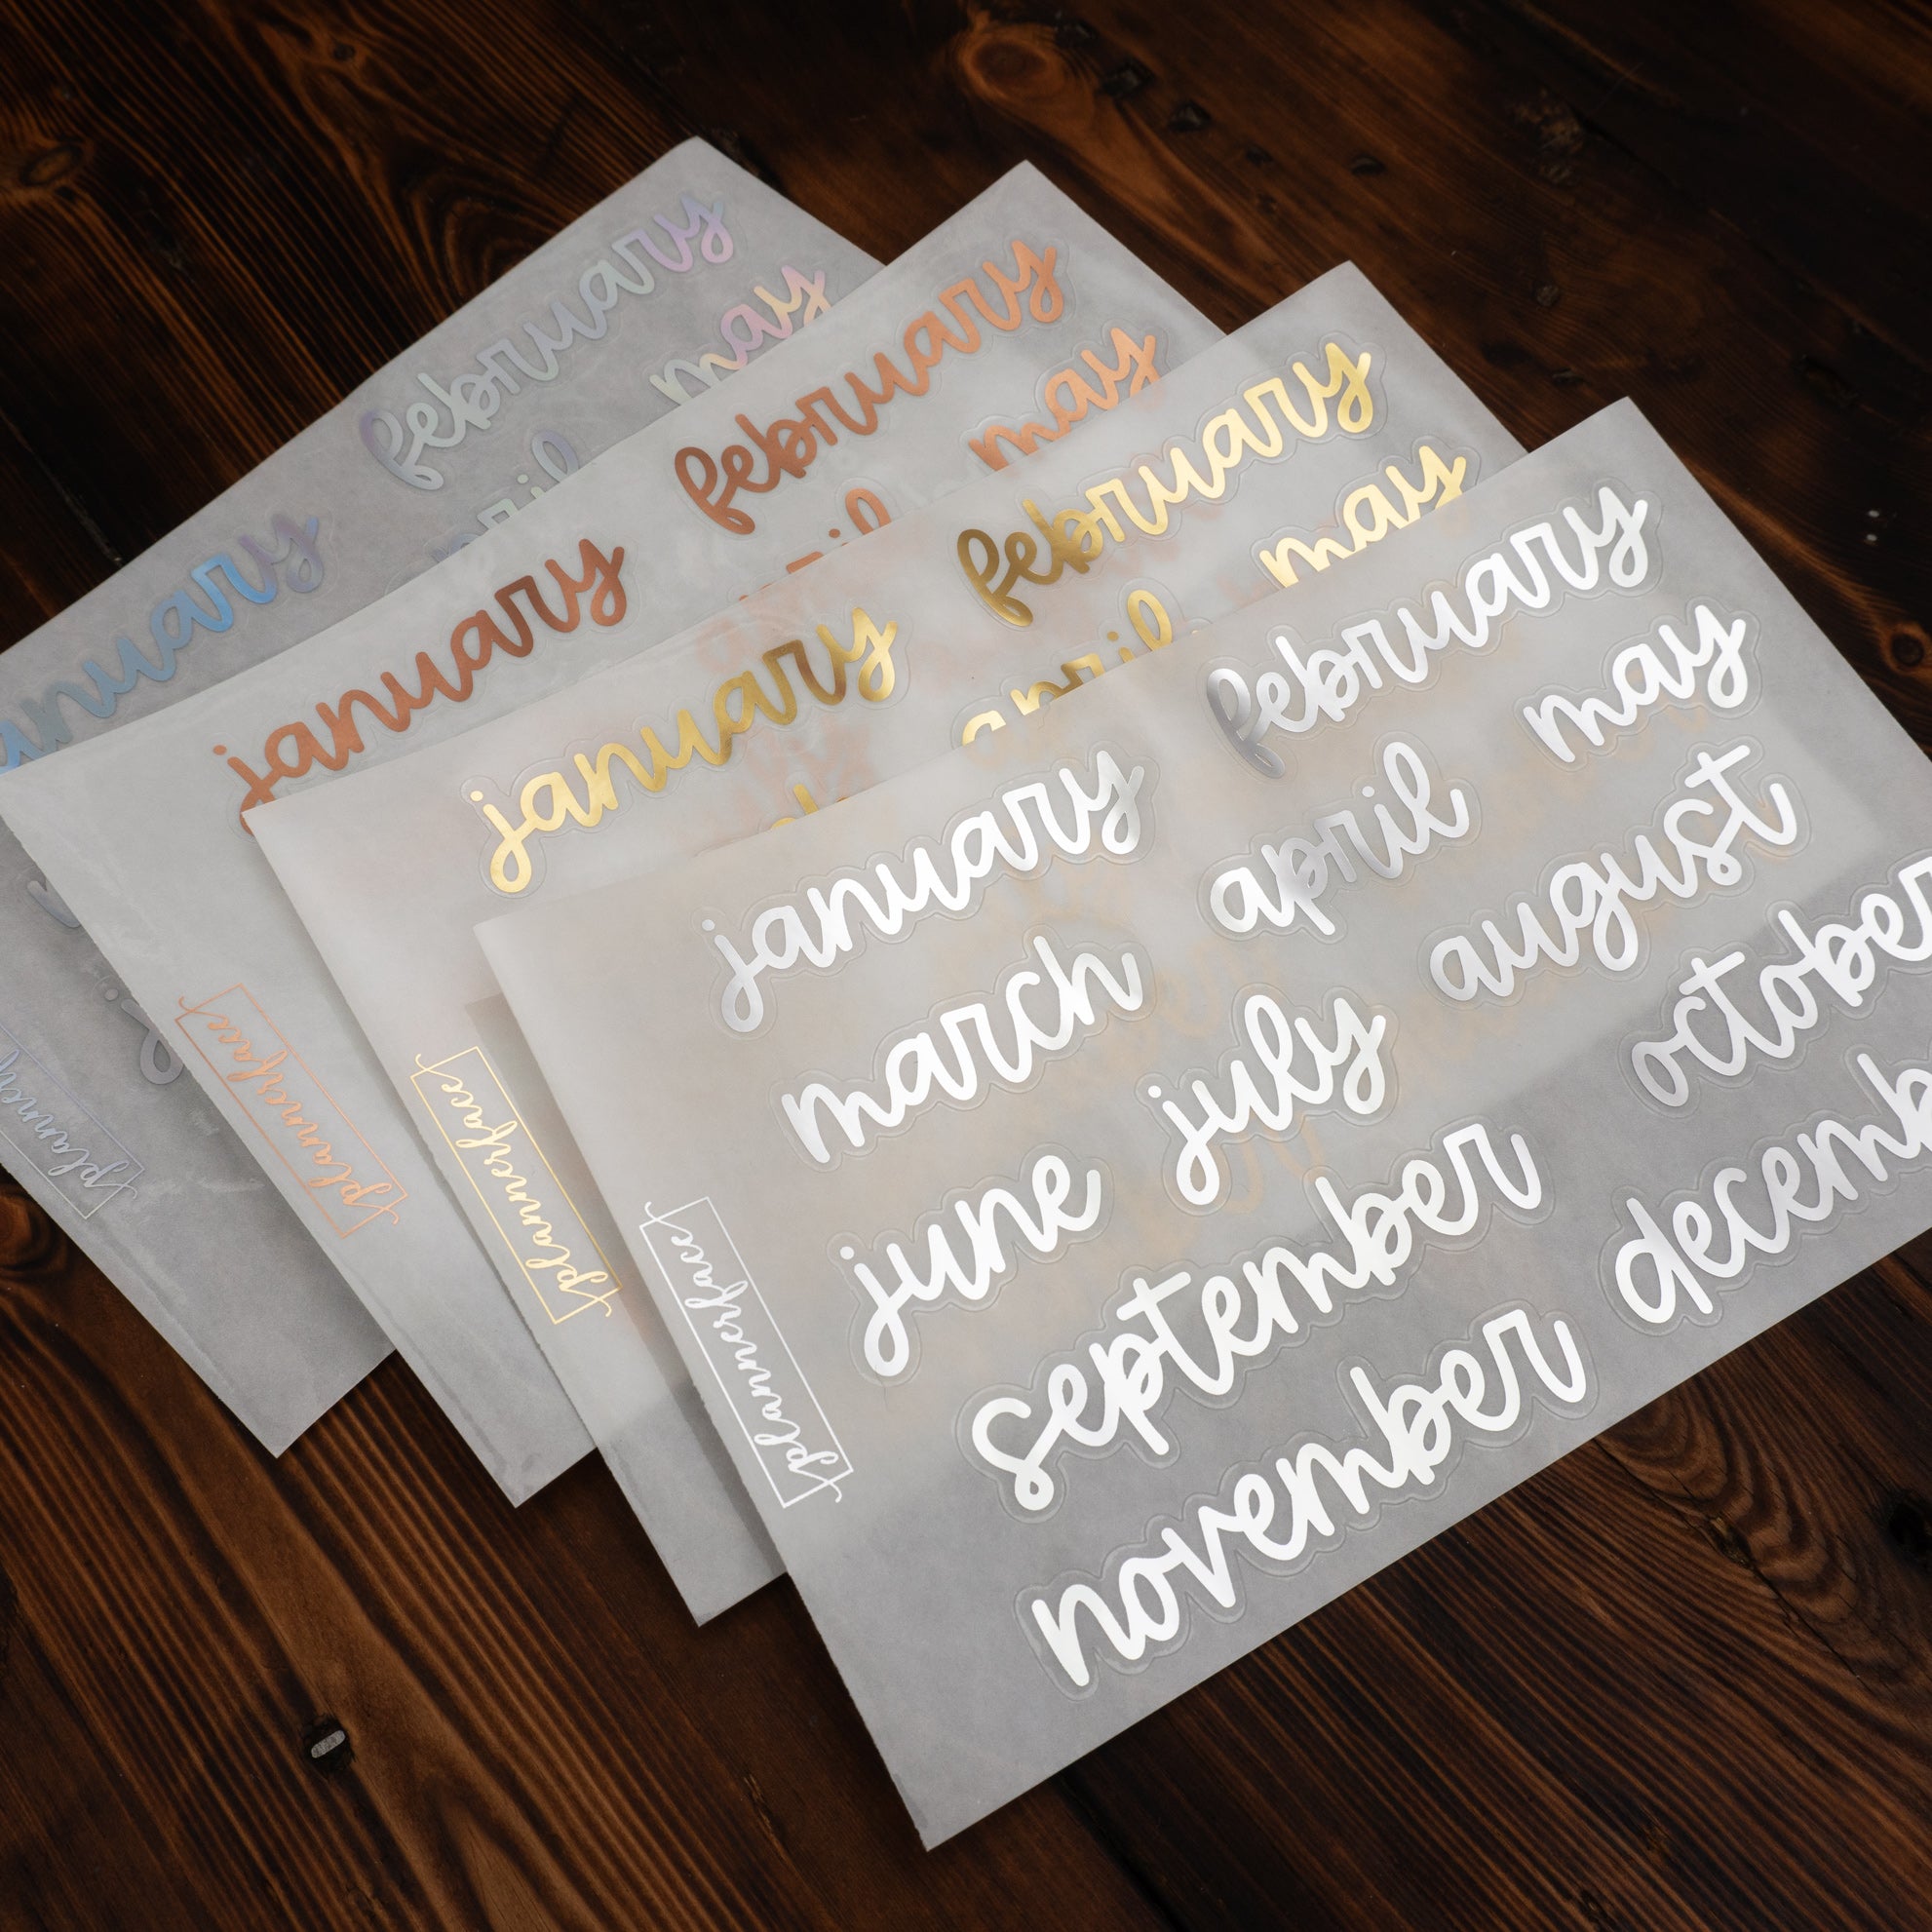 february
may
april
january
plannerface
february
may
april
january
plannerface
february
may
april
january
plannerface
january february
march april may
june july august
september october
november decemb
plannerface